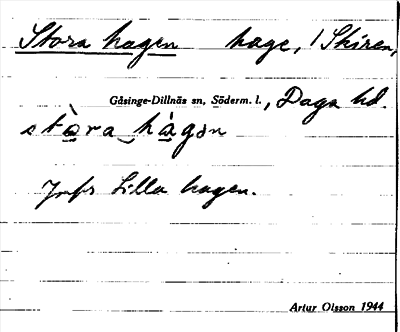 Stora hagen hage, / Skiren,
Gåsinge-Dillnäs sn, Söderm. l., Daga hd.
stòra hàgən
Jmfr Lilla hagen.
Artur Olsson 1944